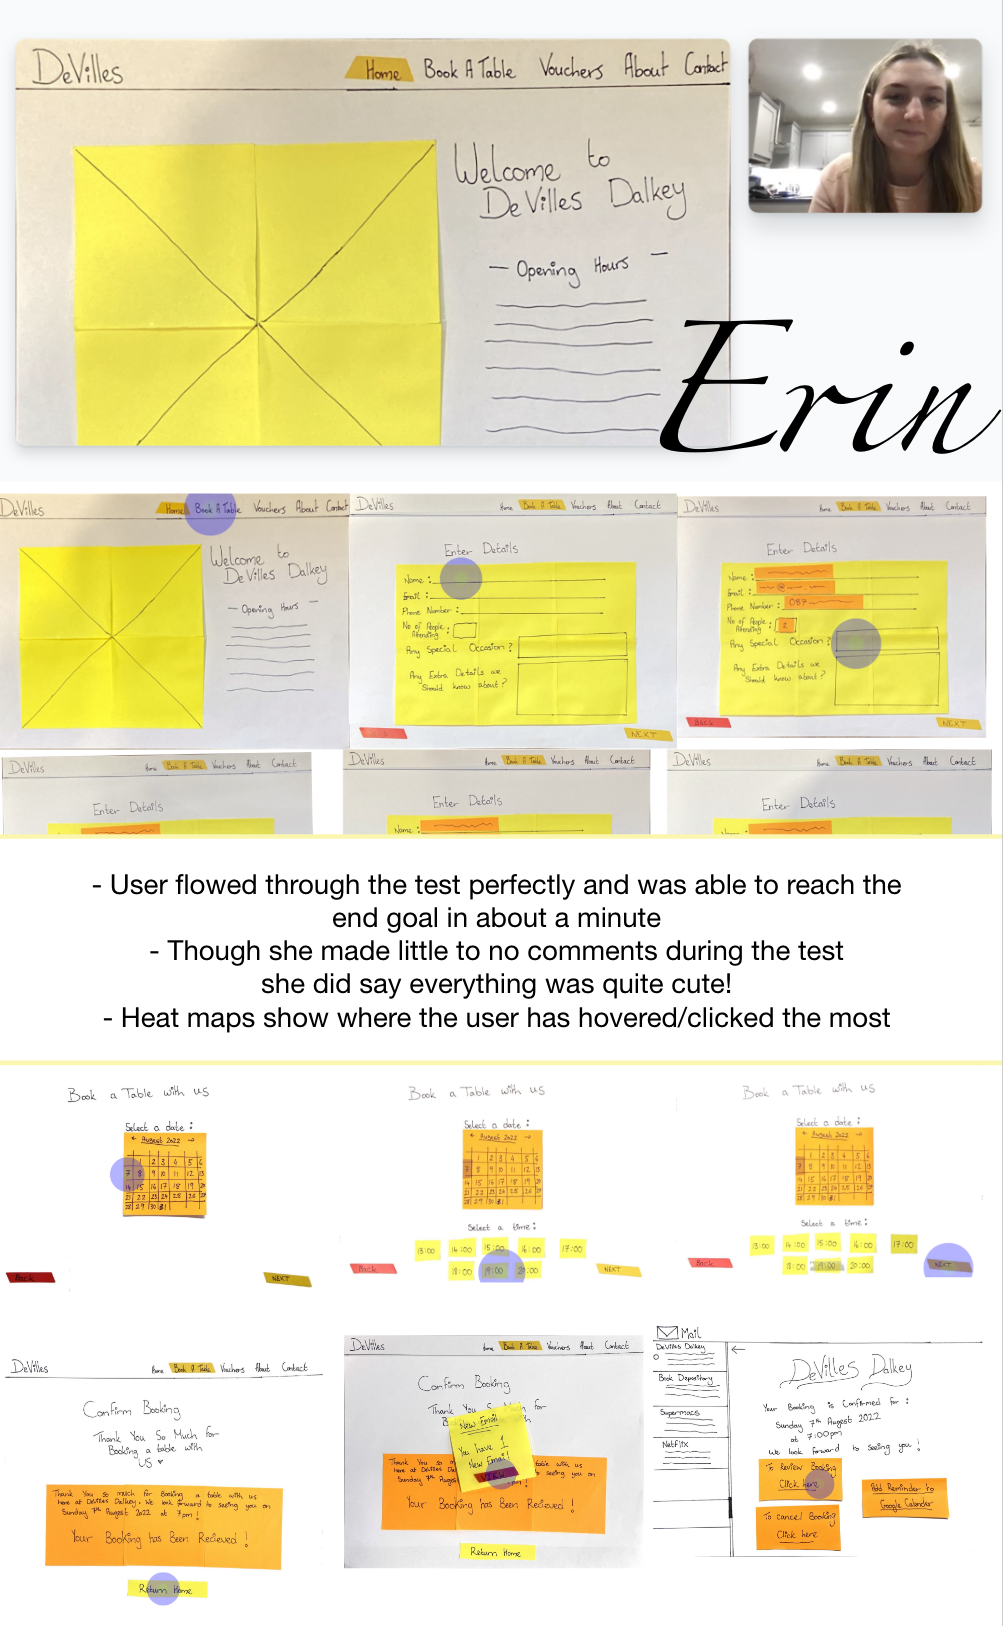 DeVilles
Home Book A Table Vouchers About Contact
Welcome to
DeVilles Dalkey
- Opening Hours -
Erin
DeVilles
Home Book A Table Vouchers About Contact
Welcome to
DeVilles Dalkey
- Opening Hours -
DeVilles
Home Book A Table Vouchers About Contact
Enter Details
Name :
Email :
Phone Number :
No of People
Attending :
Any Special Occasion ?
Any Extra Details we
Should know about ?
Back
NEXT
DeVilles
Home Book A Table Vouchers About Contact
Enter Details
Name :
Email :
@
Phone Number : 087
No of People
Attending : 2
Any Special Occasion ?
Any Extra Details we
Should know about ?
Back
NEXT
DeVilles
Home Book A Table Vouchers About Contact
Enter Details
DeVilles
Home Book A Table Vouchers About Contact
Enter Details
Name :
DeVilles
Home Book A Table Vouchers About Contact
Enter Details
- User flowed through the test perfectly and was able to reach the
end goal in about a minute
- Though she made little to no comments during the test
she did say everything was quite cute!
- Heat maps show where the user has hovered/clicked the most
Book a Table with us
Select a date :
← August 2022 →
1 2 3 4 5 6
7 8 9 10 11 12 13
14 15 16 17 18 19 20
21 22 23 24 25 26 27
28 29 30 31
Back
NEXT
Book a Table with us
Select a date :
← August 2022 →
1 2 3 4 5 6
7 8 9 10 11 12 13
14 15 16 17 18 19 20
21 22 23 24 25 26 27
28 29 30 31
Select a time :
13:00 14:00 15:00 16:00 17:00
18:00 19:00 20:00
Back
NEXT
Book a Table with us
Select a date :
← August 2022 →
1 2 3 4 5 6
7 8 9 10 11 12 13
14 15 16 17 18 19 20
21 22 23 24 25 26 27
28 29 30 31
Select a time :
13:00 14:00 15:00 16:00 17:00
18:00 19:00 20:00
Back
NEXT
DeVilles
Home Book A Table Vouchers About Contact
Confirm Booking
Thank You So Much for
Booking a table with
US ♥
Thank You so much for Booking a table with us
here at DeVilles Dalkey. We look forward to seeing you on
Sunday 7th August 2022 at 7pm !
Your Booking has Been Recieved !
Return Home
DeVilles
Home Book A Table Vouchers About Contact
Confirm Booking
Thank You So Much for
New Email
You have 1
New Email!
Thank You so
table with us
here at DeVilles
to seeing you on
Sunday 7th August
Your Booking has Been Recieved !
Return Home
Mail
DeVilles Dalkey
Book Depository
Supermacs
Netflix
←
DeVilles Dalkey
Your Booking is Confirmed for :
Sunday 7th August 2022
at 7:00pm
We look forward to seeing you !
To Review Booking
Click here
Add Reminder to
Google Calender
To cancel Booking
Click here